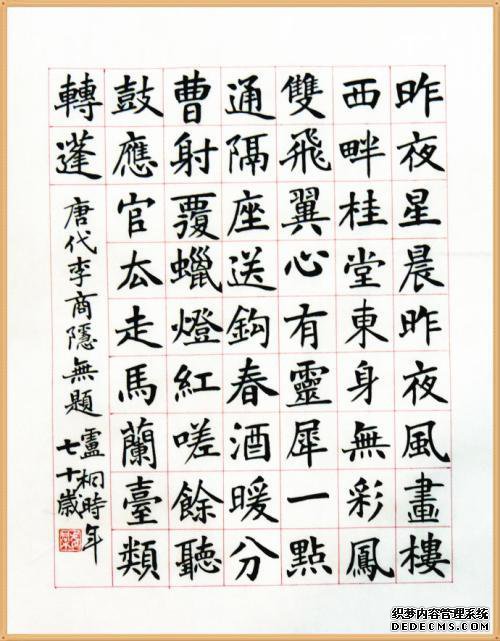 昨夜星晨昨夜風畫樓
西畔桂堂東身無彩鳳
雙飛翼心有靈犀一點
通隔座送鈎春酒暖分
曹射覆蠟燈紅嗟餘聽
鼓應官厺走馬蘭臺類
轉蓬
唐代李商隱無題
盧桐時年
七十歲
织梦内容管理系统
DEDECMS.COM